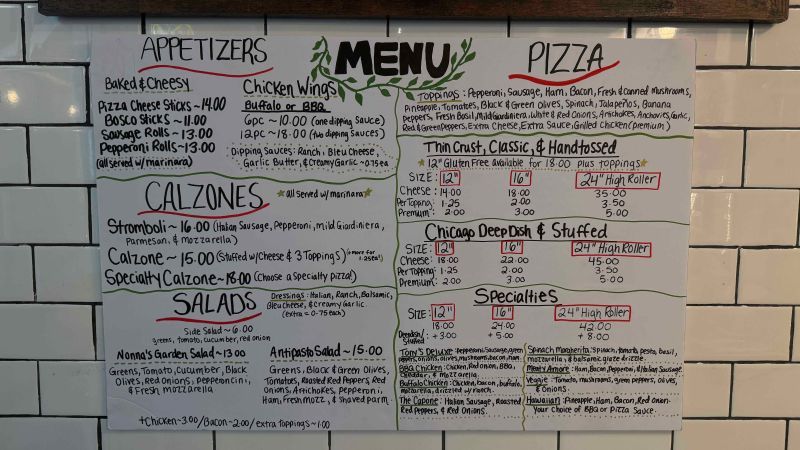 MENU
APPETIZERS
Baked & Cheesy
Pizza Cheese Sticks ~ 14.00
Bosco Sticks ~ 11.00
Sausage Rolls ~ 13.00
Pepperoni Rolls ~ 13.00
(all served w/ marinara)
Chicken Wings
Buffalo or BBQ
6pc ~ 10.00 (one dipping sauce)
12pc ~ 18.00 (two dipping sauces)
Dipping Sauces: Ranch, Bleu Cheese,
Garlic Butter, & Creamy Garlic ~ 0.75ea
CALZONES
all served w/ marinara
Stromboli ~ 16.00 (Italian Sausage, Pepperoni, mild Giardiniera,
Parmesan, & mozzarella)
Calzone ~ 15.00 (Stuffed w/ Cheese & 3 Toppings) (+ more for
1.25ea)
Specialty Calzone ~ 18.00 (Choose a Specialty pizza!)
SALADS
Dressings: Italian, Ranch, Balsamic,
Bleu Cheese, & Creamy Garlic
(extra = 0.75 each)
Side Salad ~ 6.00
greens, tomato, cucumber, red onion
Nonna's Garden Salad ~ 13.00
Greens, Tomato, Cucumber, Black
Olives, Red Onions, pepperoncini,
& Fresh mozzarella
Antipasto Salad ~ 15.00
Greens, Black & Green Olives,
Tomatoes, Roasted Red Peppers, Red
Onions, Artichokes, Pepperoni,
Ham, Fresh Mozz, & shaved parm.
+ Chicken ~ 3.00 / Bacon ~ 2.00 / extra toppings ~ 1.00
PIZZA
Toppings: Pepperoni, Sausage, Ham, Bacon, Fresh & canned mushrooms,
Pineapple, Tomatoes, Black & Green Olives, Spinach, Jalapeños, Banana
Peppers, Fresh Basil, Mild Giardiniera, White & Red Onions, Artichokes, Anchovies, Garlic,
Red & Green Peppers, Extra Cheese, Extra Sauce, Grilled Chicken (premium)
Thin Crust, Classic, & Handtossed
12" Gluten Free Available for 18.00 plus toppings
SIZE: 12" 16" 24" High Roller
Cheese: 14.00 18.00 35.00
Per Topping: 1.25 2.00 3.50
Premium: 2.00 3.00 5.00
Chicago Deep Dish & Stuffed
SIZE: 12" 16" 24" High Roller
Cheese: 18.00 22.00 45.00
Per Topping: 1.25 2.00 3.50
Premium: 2.00 3.00 5.00
Specialties
SIZE: 12" 16" 24" High Roller
18.00 24.00 42.00
Deepdish/
Stuffed + 3.00 + 5.00 + 8.00
Tony's Deluxe: Pepperoni, Sausage, green
peppers, onions, olives, mushrooms, bacon, ham
BBQ Chicken: Chicken, Red onion, BBQ,
Cheddar, & mozzarella
Buffalo Chicken: Chicken, bacon, buffalo,
mozzarella, drizzled w/ ranch
The Capone: Italian Sausage, Roasted
Red Peppers, & Red Onions.
Spinach Margherita: Spinach, tomato, pesto, basil,
mozzarella, & balsamic glaze drizzle
Meaty Amore: Ham, Bacon, Pepperoni, & Italian Sausage
Veggie: Tomato, mushrooms, green peppers, olives,
& Onions.
Hawaiian: Pineapple, Ham, Bacon, Red onion
Your choice of BBQ or Pizza Sauce.